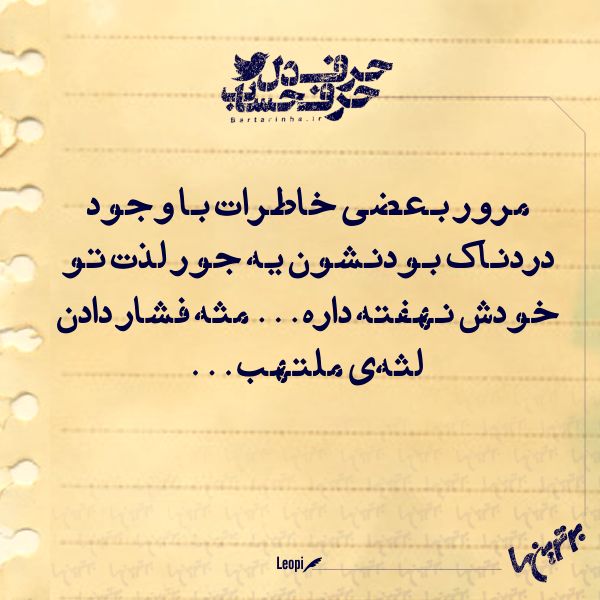 حرف دل
حرف حساب
Bartarinha.ir
مرور بعضی خاطرات با وجود
دردناک بودنشون یه جور لذت تو
خودش نهفته داره... مثه فشار دادن
لثه‌ی ملتهب...
Leopi
برترین‌ها